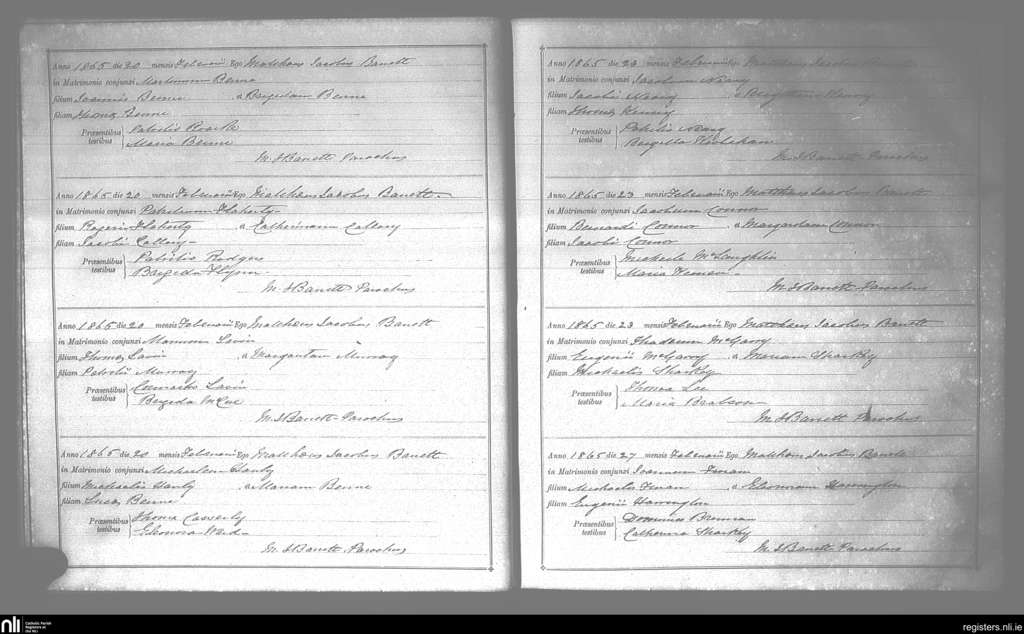 Anno 1865 die 20 mensis Februarii Ego Matthæus Jacobus Barrett
in Matrimonio conjunxi Martinum Beirne
filium Joannis Beirne a Brigidam Beirne
filiam Thomæ Beirne
Præsentibus testibus Patritio Roarke
Maria Beirne
M. J. Barrett Parochus
Anno 1865 die 20 mensis Februarii Ego Matthæus Jacobus Barrett
in Matrimonio conjunxi Patritium Flaherty
filium Rogerii Flaherty a Catherinam Callery
filiam Jacobi Callery
Præsentibus testibus Patritio Rodgers
Brigida Flynn
M. J. Barrett Parochus
Anno 1865 die 20 mensis Februarii Ego Matthæus Jacobus Barrett
in Matrimonio conjunxi Lavin
filium Thomæ Lavin a Margaritam Murray
filiam Patritii Murray
Præsentibus testibus Lavin
Brigida McCue
M. J. Barrett Parochus
Anno 1865 die 20 mensis Februarii Ego Matthæus Jacobus Barrett
in Matrimonio conjunxi Michaelem Hanly
filium Michaelis Hanly a Mariam Beirne
filiam Lucæ Beirne
Præsentibus testibus Thoma Casserly
Eleonora Ward
M. J. Barrett Parochus
Anno 1865 die 23 mensis Februarii Ego Matthæus Jacobus Barrett
in Matrimonio conjunxi Jacobum Neary
filium Jacobi Neary a
filiam Thomæ Kenny
Præsentibus testibus Patritio Neary
Brigitta
M. J. Barrett Parochus
Anno 1865 die 23 mensis Februarii Ego Matthæus Jacobus Barrett
in Matrimonio conjunxi Jacobum Connor
filium Bernardi Connor a Margaritam Connor
filiam Jacobi Connor
Præsentibus testibus Michaele McLaughlin
Maria
M. J. Barrett Parochus
Anno 1865 die 23 mensis Februarii Ego Matthæus Jacobus Barrett
in Matrimonio conjunxi Thadeum McGarry
filium Eugenii McGarry a Mariam Sharkey
filiam Michaelis Sharkey
Præsentibus testibus Thoma Lee
Maria Brabson
M. J. Barrett Parochus
Anno 1865 die 27 mensis Februarii Ego Matthæus Jacobus Barrett
in Matrimonio conjunxi Joannem
filium Michaelis a Eleonoram Harrington
filiam Eugenii Harrington
Præsentibus testibus Dominico Brennan
Catherina Sharkey
M. J. Barrett Parochus
nli Catholic Parish Registers at the NLI
registers.nli.ie